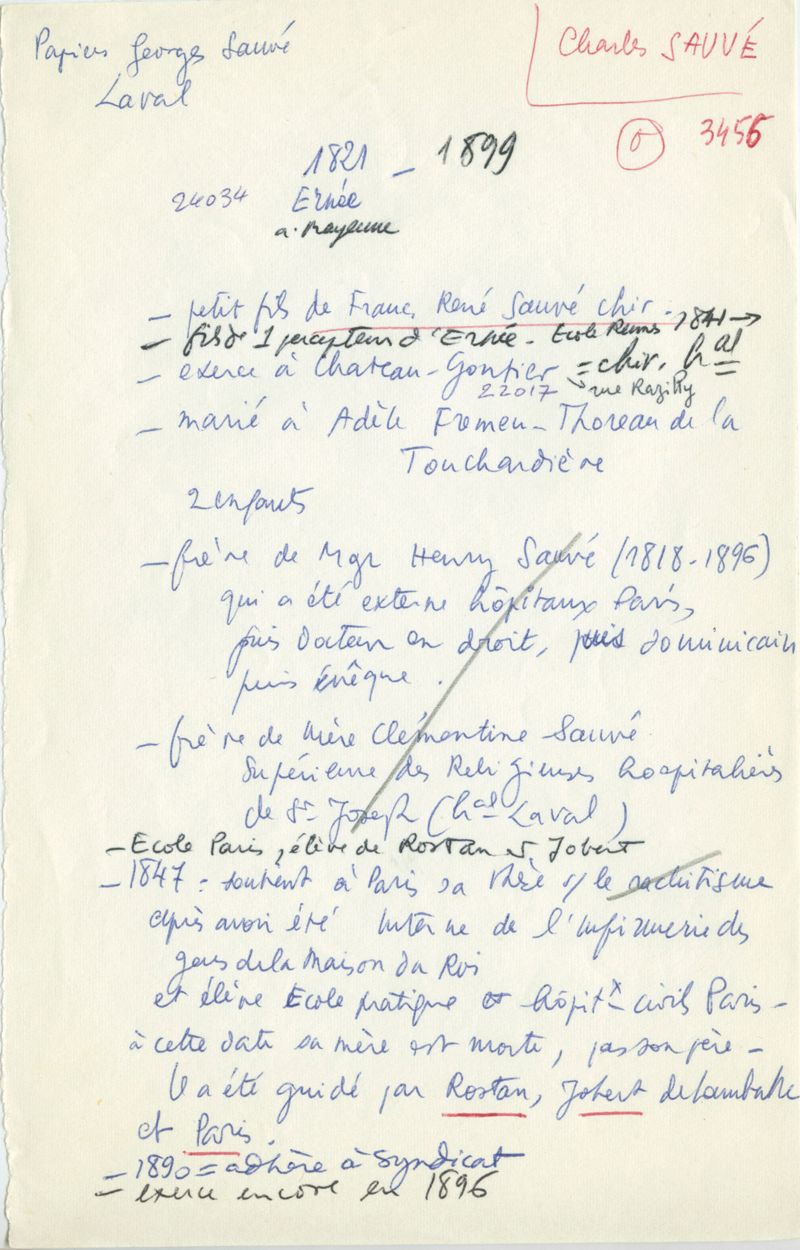 Papiers Georges Sauvé
Laval
Charles SAUVÉ
0 3456
1821 - 1899
24034 Ernée
a. Mayenne
- petit fils de Franc. René Sauvé chir.
- fils de 1 percepteur d'Ernée - Ecole Rennes 1841 →
- exerce à Chateau-Gontier = chir. hal
22017 rue Razilly
- marié à Adèle Fremen-Thoreau de la
Touchardière
2 enfants
- frère de Mgr Henry Sauvé (1818-1896)
qui a été externe hôpitaux Paris,
puis Docteur en droit, puis dominicain
puis évêque.
- frère de Mère Clémentine Sauvé
Supérieure des Religieuses hospitalières
de St Joseph (hal Laval)
- Ecole Paris, élève de Rostan et Jobert
- 1847 = soutient à Paris sa thèse s/ le rachitisme
après avoir été Interne de l'Infirmerie des
gens de la Maison du Roi
et élève Ecole pratique et hôpitx civils Paris -
à cette date sa mère est morte, pas son père -
Il a été guidé par Rostan, Jobert de Lamballe
et Paris.
- 1890 = adhère à Syndicat
- exerce encore en 1896